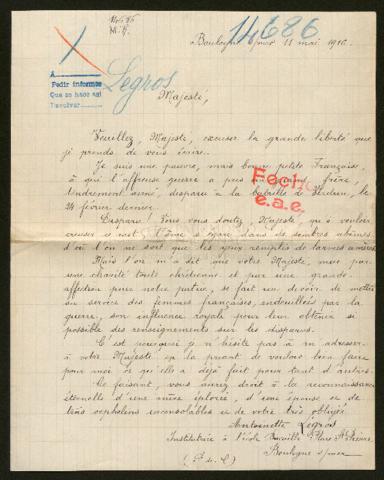 14,686
Legros
A
Pedir informes
Que se hace así
Devolver
Boulogne s/mer 11 mai 1916.
Majesté,
Veuillez, Majesté, excuser la grande liberté que
je prends de vous écrire.
Je suis une pauvre, mais bonne petite Française,
à qui l'affreuse guerre a pris un grand frère,
tendrement aimé, disparu à la bataille de Verdun, le
24 février dernier.
Fecho
e.a.e.
Disparu! Vous vous doutez, Majesté, qu'à vouloir
creuser ce mot l'âme s'égare dans de sombres abîmes
d'où l'on ne sort que les yeux remplis de larmes amères.
Mais l'on m'a dit que votre Majesté, mue par
une charité toute chrétienne et par une grande
affection pour notre patrie, se fait un devoir de mettre
au service des femmes françaises, endeuillées par la
guerre, son influence royale pour leur obtenir si
possible des renseignements sur les disparus.
C'est pourquoi je n'hésite pas à m'adresser
à votre Majesté en la priant de vouloir bien faire
pour moi ce qu'elle a déjà fait pour tant d'autres.
Ce faisant, vous aurez droit à la reconnaissance
éternelle d'une mère éplorée, d'une épouse et de
très orphelins inconsolables et de votre très obligée
Antoinette Legros
Institutrice à l'école Place
Boulogne s/mer
(P. de C.)